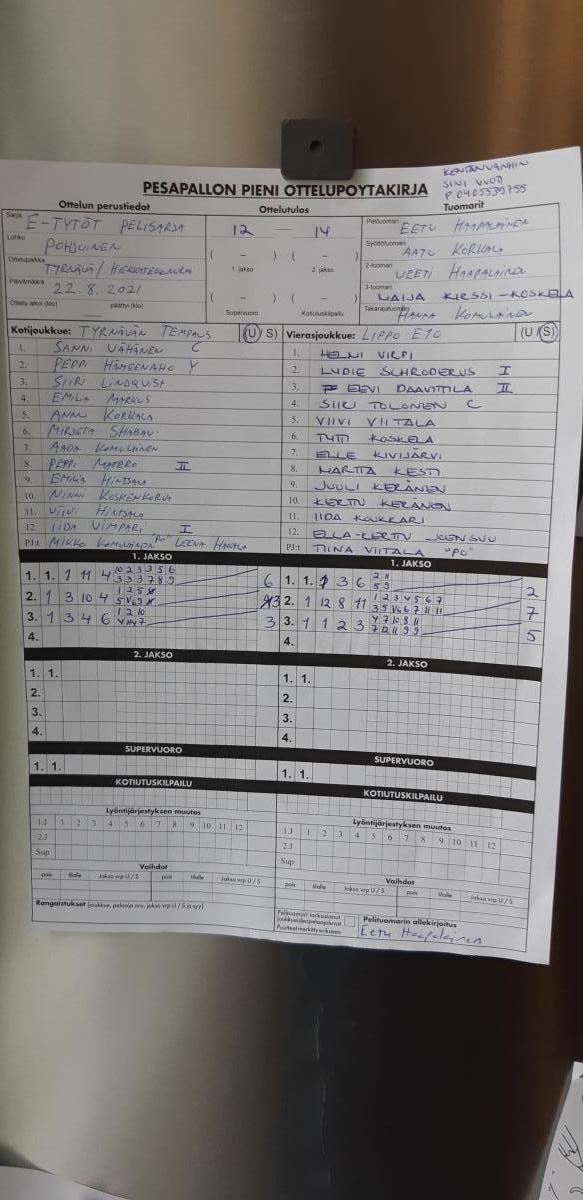 KENTÄNVANHIN
SINI VUOTI
P. 0405539755
PESÄPALLON PIENI OTTELUPÖYTÄKIRJA
Ottelun perustiedot Ottelutulos Tuomarit
Sarja E-TYTÖT PELISARJA 12 — 14 Pelituomari EETU HAAPALAINEN
Lohko POHJOINEN Syöttötuomari AATU KORKALA
Ottelupaikka TYRNÄVÄ / HIEKOTEKNURA ( – ) ( – ) 2-tuomari VEETI HAAPALAINEN
1. jakso 2. jakso
Päivämäärä 22.8.2021 ( – ) ( – ) 3-tuomari MAIJA KIRSSI-KOSKELA
Ottelu alkoi (klo) päättyi (klo) Supervuoro Kotiutuskilpailu Takarajatuomari HANNA KOMULAINEN
Kotijoukkue: TYRNÄVÄN TEMPAUS (U/S) Vierasjoukkue: LIPPO E10 (U/S)
1. SANNI VÄHÄNEN C 1. HELMI VIRPI
2. PEPPI HÄMEENAHO Y 2. LYDIE SCHRODERUS I
3. SIIRI LINDQVIST 3. EEVI DAAVITTILA II
4. EMILIA MARKUS 4. SIIRI TOLONEN C
5. ANNI KORKALA 5. VIIVI VIITALA
6. MIRJETA SHABAVI 6. TYTTI KOSKELA
7. AADA KOMULAINEN 7. ELLE KIVIJÄRVI
8. PEPPI MATERO II 8. MARTTA KESTI
9. EMILIA HINTSALA 9. JUULI KERÄNEN
10. NINNI KOSKENKORVA 10. KERTTU KERÄNEN
11. VIIVI HINTSALA 11. IIDA KOUKKARI
12. IIDA VIMPARI I 12. ELLA-KERTTU JOENSUU
PJ:t MIKKO KOMULAINEN "PO" LEENA HAKALA PJ:t TIINA VIITALA "PO"
1. JAKSO 1. JAKSO
1. 1. 1 11 4 10 2 3 3 5 6 6 1. 1. 1 3 6 2 11 2
3 3 3 7 8 9 5 9
2. 1 3 10 4 1 2 5 3 2. 1 12 8 11 1 2 3 4 5 6 7 7
3 5 6 6 7 11 11
3. 1 3 4 6 1 2 10 3 3. 1 1 2 3 4 7 10 8 11 5
7 12 11 9 9
4. 4.
2. JAKSO 2. JAKSO
1. 1. 1. 1.
2. 2.
3. 3.
4. 4.
SUPERVUORO SUPERVUORO
1. 1. 1. 1.
KOTIUTUSKILPAILU KOTIUTUSKILPAILU
Lyöntijärjestyksen muutos Lyöntijärjestyksen muutos
1.J 1 2 3 4 5 6 7 8 9 10 11 12 1.J 1 2 3 4 5 6 7 8 9 10 11 12
2.J 2.J
Sup Sup
Vaihdot Vaihdot
pois tilalle Jakso vrp U / S pois tilalle Jakso vrp U / S pois tilalle Jakso vrp U / S pois tilalle Jakso vrp U / S
Rangaistukset (joukkue, pelaaja nro, jakso vrp U / S ja syy) Pelituomari tarkastanut joukkueidenpelaajaluvat Pelituomarin allekirjoitus
Puutteet merkitty erikseen Eetu Haapalainen